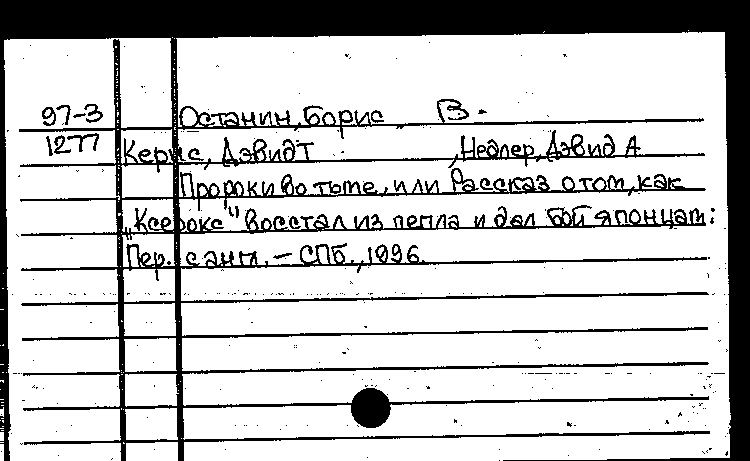 97-3 Останин, Борис В.
1277 Керис, Дэвид Т , Недлер, Дэвид А
Пророки во тьме, или Рассказ о том, как
„Ксерокс" восстал из пепла и дал бой японцам:
Пер. с англ. – СПб., 1996.